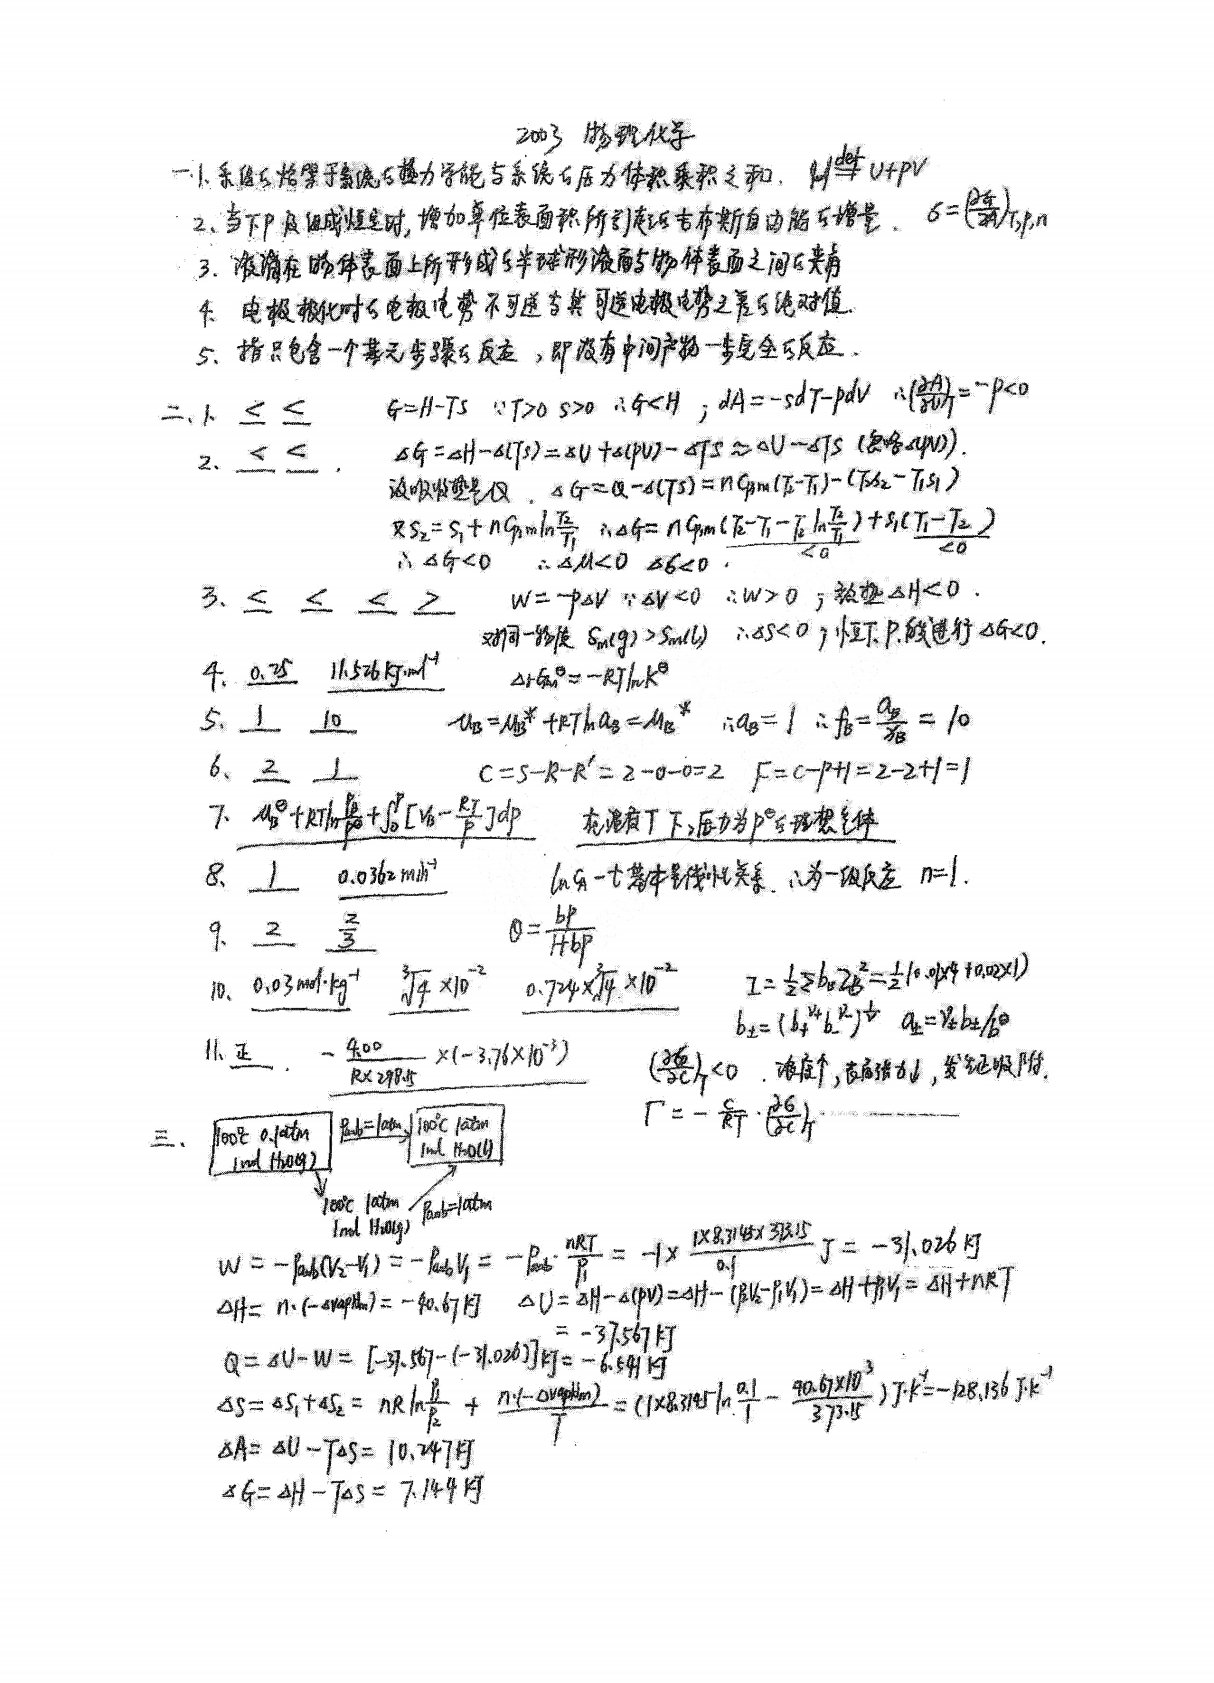 2003 物理化学
一.1. 系统的焓等于系统的热力学能与系统的压力体积乘积之和. H def= U+pV
2、当T P及组成恒定时,增加单位表面积所引起的吉布斯自由能的增量. σ=(∂G/∂A)T,p,n
3. 液滴在物体表面上所形成的半球形液面与物体表面之间的夹角
4. 电极极化时的电极电势不可逆与其可逆电极电势之差的绝对值.
5、指只包含一个基元步骤的反应,即没有中间产物一步完全的反应.
二、1. ≤ ≤ G=H-TS ∵T>0 S>0 ∴G<H ; dA=-SdT-pdV ∴(∂A/∂V)T=-P<0
2、 < < . ΔG=ΔH-Δ(TS)=ΔU+Δ(pV)-ΔTS≈ΔU-ΔTS (忽略Δ(pV)).
设吸收热量Q. ΔG=Q-Δ(TS)=nCp,m(T2-T1)-(T2S2-T1S1)
又S2=S1+nCp,m ln T2/T1 ∴ΔG=nCp,m(T2-T1-T2 ln T2/T1)+S1(T1-T2) <0 <0
∴ΔG<0 ∴Δμ<0 ΔG<0.
3、 < ≤ < > W=-pΔV ∵ΔV<0 ∴W>0 ; 放热ΔH<0.
对同一物质 Sm(g)>Sm(l) ∴ΔS<0 ; 恒T.P.能进行ΔG<0.
4、 0.25 11.526 kJ·mol⁻¹ ΔrGm⊖=-RTlnK⊖
5、 1 10 μB=μB*+RTlnaB=μB* ∴aB=1 ∴fB=aB/xB=10
6、 2 1 C=S-R-R′=2-0-0=2 F=C-P+1=2-2+1=1
7、 μB⊖+RTln PB/P⊖+∫₀ᴾ[VB-RT/P]dp 在温度T下,压力为P⊖的理想气体
8、 1 0.0362 min⁻¹ lnCA-t 基本呈线性关系. ∴为一级反应 n=1.
9、 2 2/3 θ=bp/1+bp
10、 0.03mol·kg⁻¹ ³√4×10⁻² 0.724×³√4×10⁻² I=½ΣbBZB²=½(0.01×4+0.02×1)
b±=(b₊^ν₊ b₋^ν₋)^1/ν a±=γ±b±/b⊖
11. 正. - 4.00/R×298.15 ×(-3.76×10⁻³) (∂σ/∂C)T<0. 浓度↑,表面张力↓,发生正吸附.
Γ=-C/RT·(∂σ/∂C)T
三、 100℃ 0.1atm 1mol H₂O(g) Pamb=1atm 100℃ 1atm 1mol H₂O(l)
100℃ 1atm 1mol H₂O(g) Pamb=1atm
W=-Pamb(V2-V1)=-PambV1=-Pamb·nRT/P1=-1×1×8.3145×373.15/0.1 J=-31.026kJ
ΔH=n·(-ΔvapHm)=-40.67kJ ΔU=ΔH-Δ(pV)=ΔH-(P2V2-P1V1)=ΔH+P1V1=ΔH+nRT
=-37.567kJ
Q=ΔU-W=[-37.567-(-31.026)]kJ=-6.541kJ
ΔS=ΔS1+ΔS2=nRln P1/P2+n·(-ΔvapHm)/T=(1×8.3145ln 0.1/1-40.67×10³/373.15)J·K⁻¹=-128.136J·K⁻¹
ΔA=ΔU-TΔS=10.247kJ
ΔG=ΔH-TΔS=7.144kJ